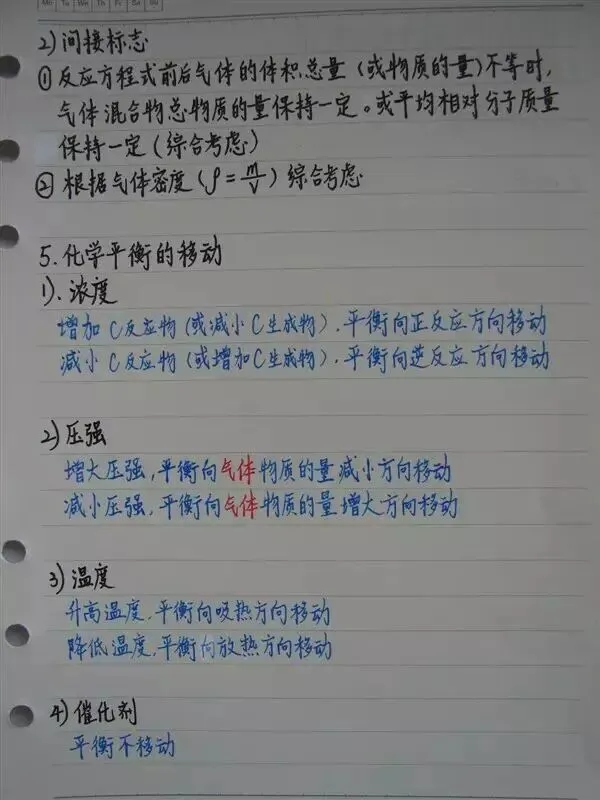 Mo Tu We Th Fr Sa Su
2) 间接标志
① 反应方程式前后气体的体积总量 (或物质的量) 不等时,
气体混合物总物质的量保持一定。或平均相对分子质量
保持一定 (综合考虑)
② 根据气体密度 (ρ = m/V) 综合考虑
5. 化学平衡的移动
1). 浓度
增加 C反应物 (或减小 C生成物), 平衡向正反应方向移动
减小 C反应物 (或增加 C生成物), 平衡向逆反应方向移动
2) 压强
增大压强, 平衡向气体物质的量减小方向移动
减小压强, 平衡向气体物质的量增大方向移动
3) 温度
升高温度, 平衡向吸热方向移动
降低温度, 平衡向放热方向移动
4) 催化剂
平衡不移动